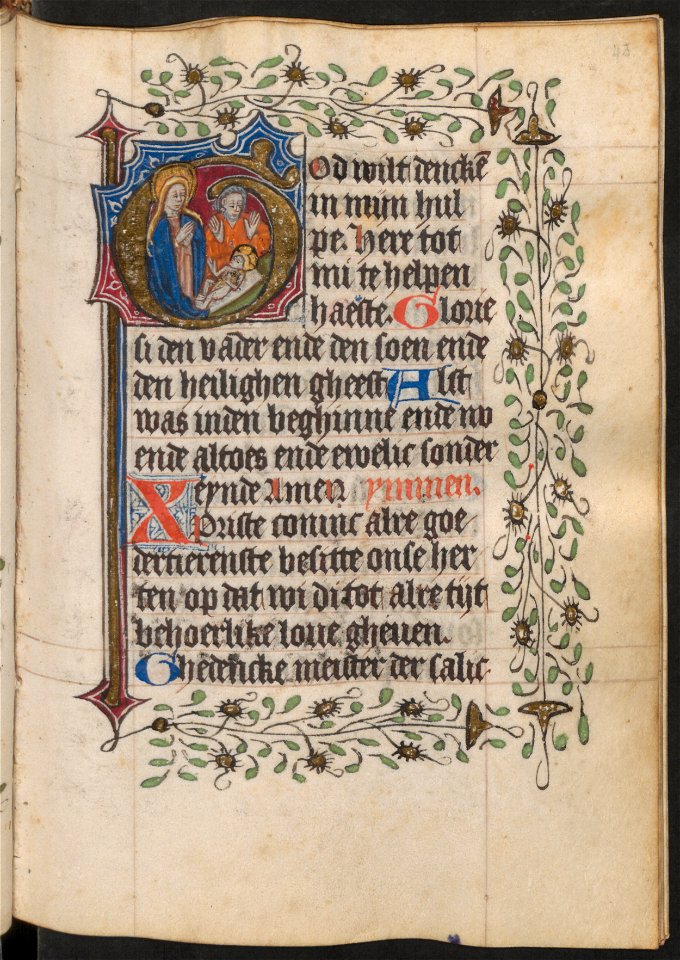 43
God wilt dencke͞
in mijn hul
pe. Here tot
mi te helpen
haeste. Glorie
si den vader ende den soen ende
den heilighen gheest Alst
was inden beghinne ende nv
ende altoes ende ewelic sonder
eynde Amen ymmen.
Xpriste coninc alre goe
dertierenste besitte onse her
ten op dat wi di tot alre tijt
behoerlike love gheven.
Ghedencke meister der salic